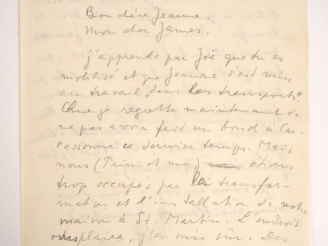 Bien chère Jeanne,
Mon cher James.
J'apprends par Joë que tu es
mobilisé et que Jeanne s'est mise
au travail dans les transports.
Que je regrette maintenant de
ne pas avoir fait un bond à Car-
cassonne ce dernier temps. Mais
nous (Prim et moi) étions
trop occupés par la transfor-
mation et l'installation de notre
maison à St. Martin. L'endroit
vous plaira, j'en suis sûr. Des